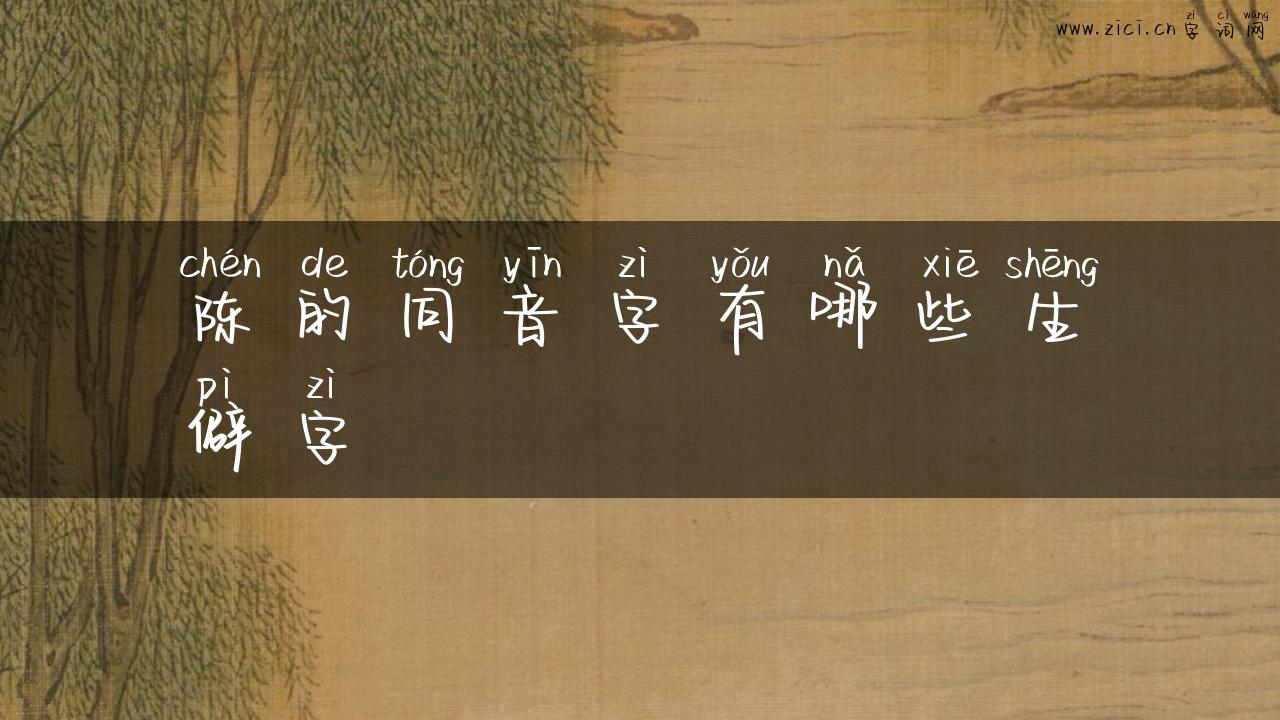 zì cí wǎng
www.zici.cn 字 词 网
chén de tóng yīn zì yǒu nǎ xiē shēng
陈 的 同 音 字 有 哪 些 生
pì zì
僻 字